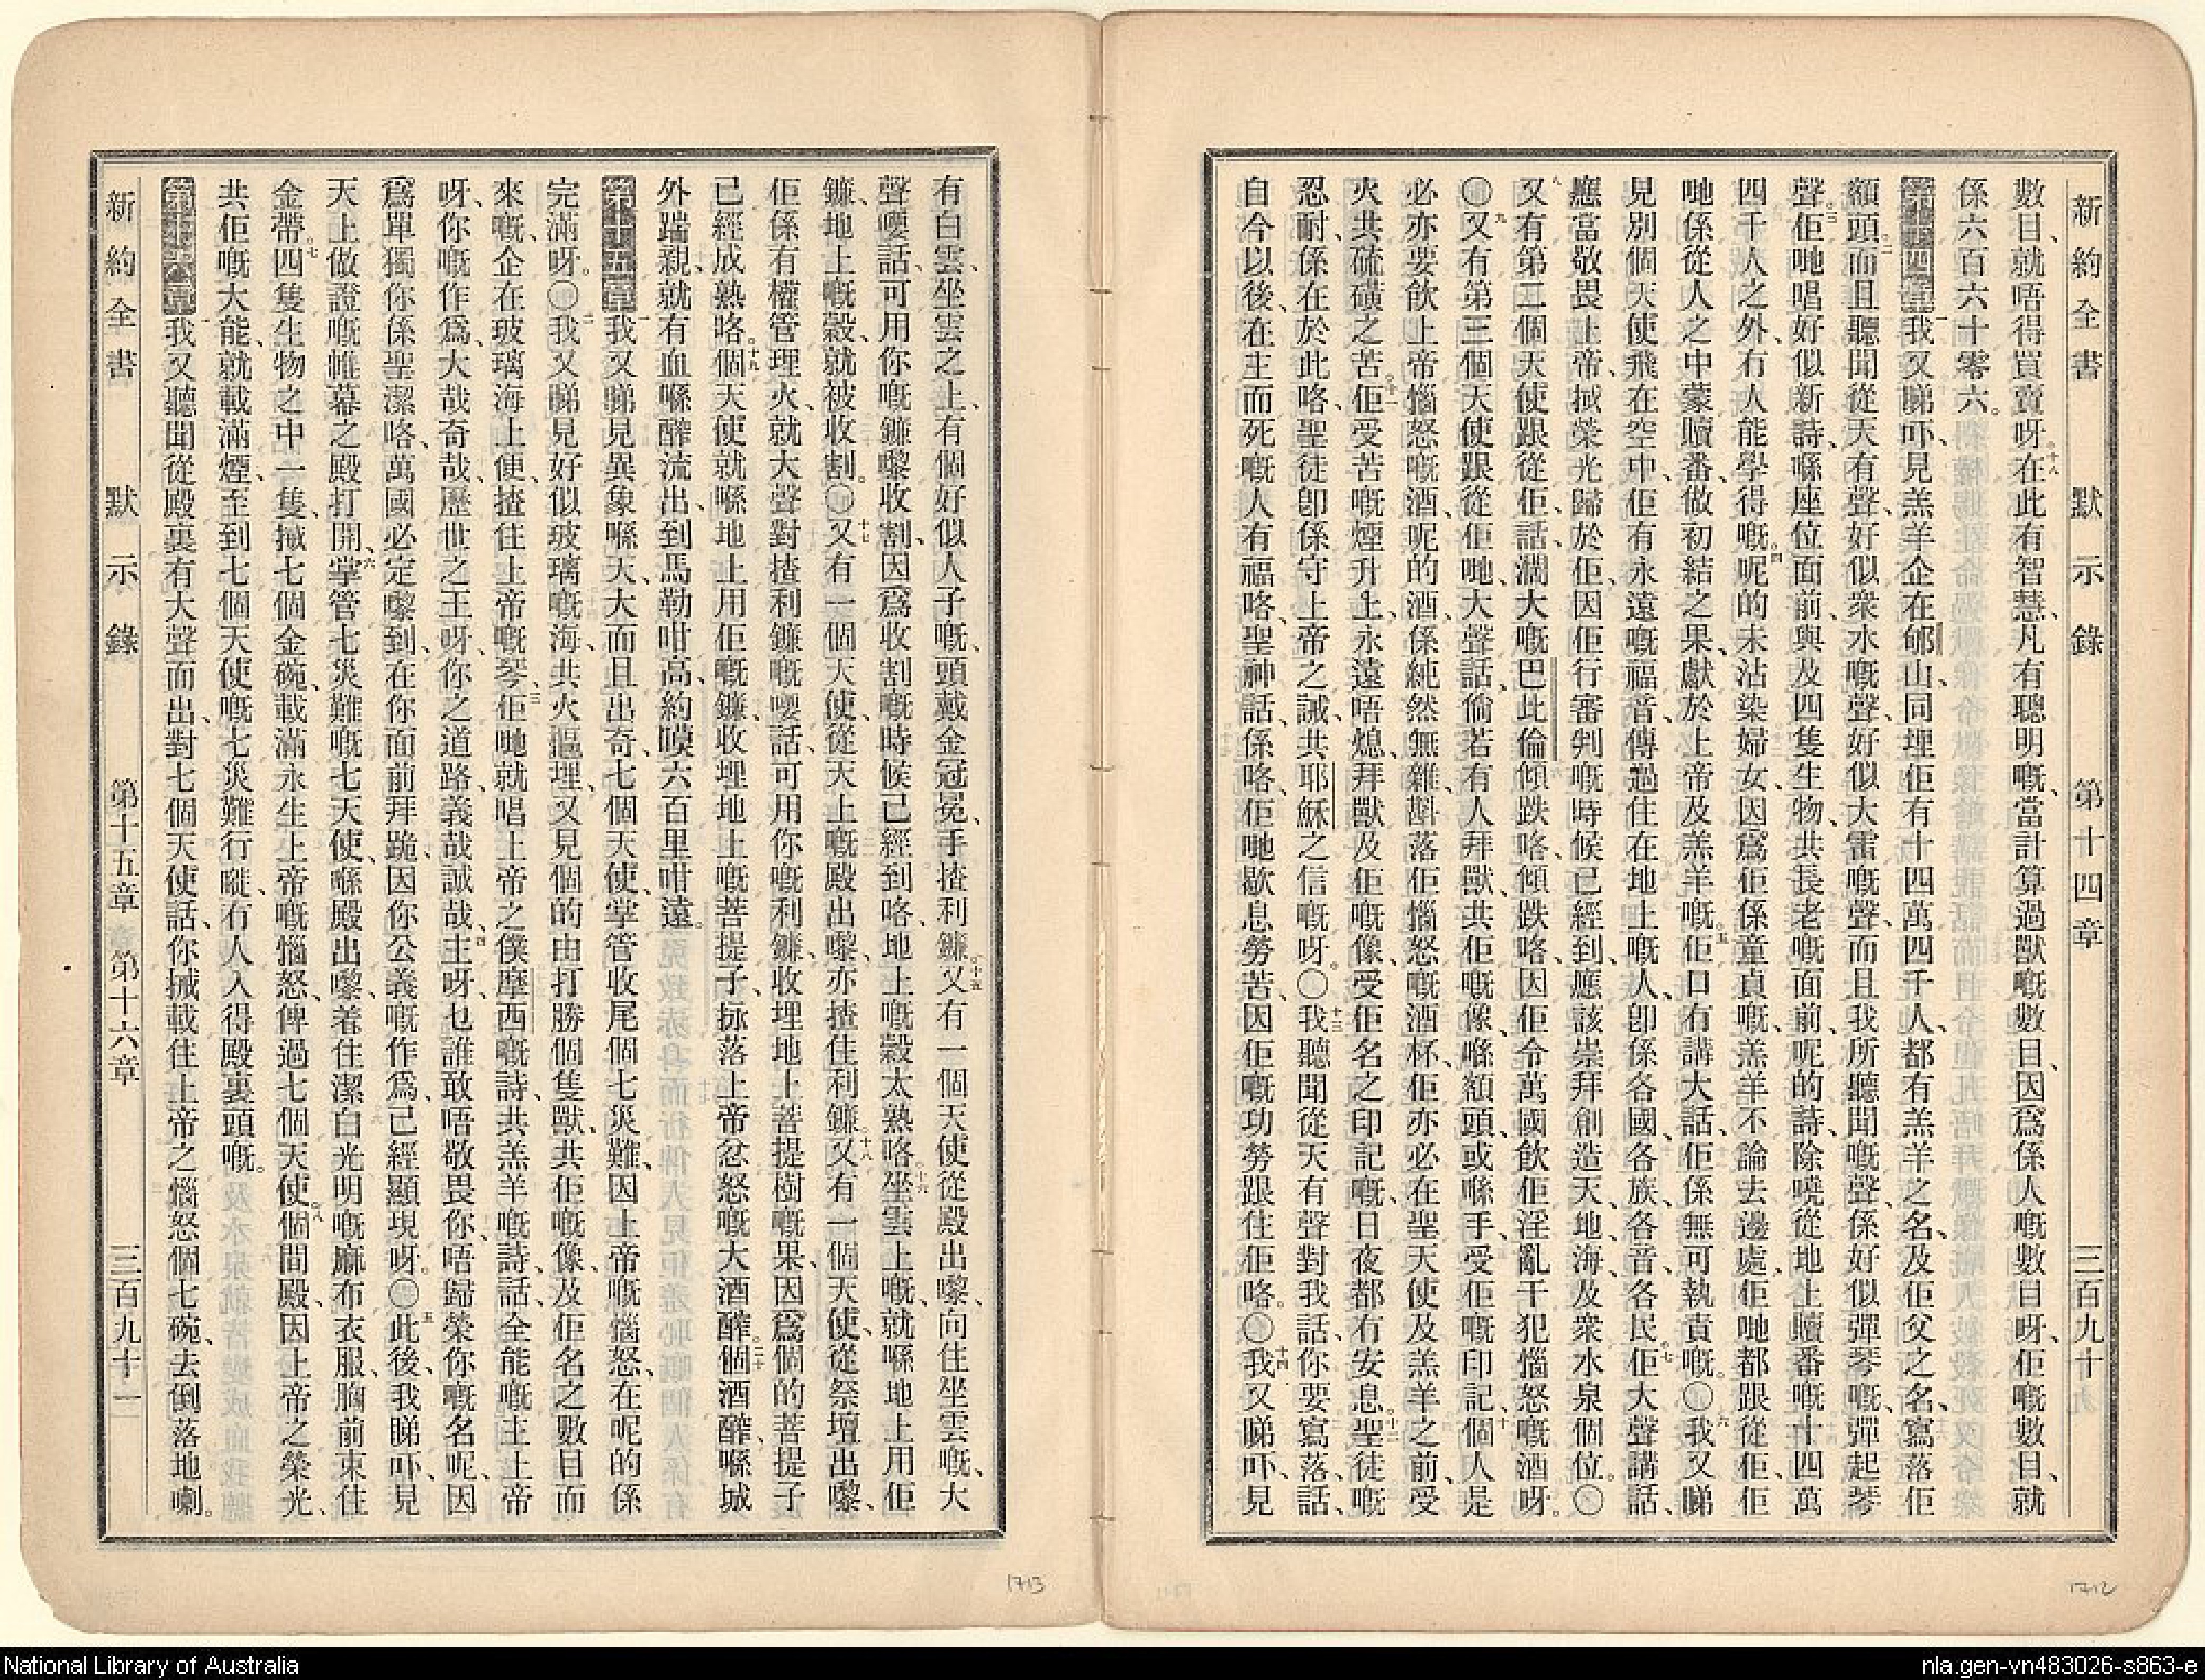 新約全書 默示錄 第十四章 三百九十
數目、就唔得買賣呀。十八在此有智慧、凡有聰明嘅、當計算過獸嘅數目、因爲係人嘅數目呀、佢嘅數目、就
係六百六十零六。
第十四章一我又睇吓、見羔羊企在郇山、同埋佢有十四萬四千人、都有羔羊之名、及佢父之名、寫落佢
額頭。二而且聽聞從天有聲、好似衆水嘅聲、好似大雷嘅聲、而且我所聽聞嘅聲、係好似彈琴嘅、彈起琴
聲。三佢哋唱好似新詩、喺座位面前、與及四隻生物、共長老嘅面前、呢的詩、除曉從地上贖番嘅十四萬
四千人之外、冇人能學得嘅。四呢的未沾染婦女、因爲佢係童貞嘅、羔羊不論去邊處、佢哋都跟從佢、佢
哋係從人之中蒙贖番、做初結之果、獻於上帝及羔羊嘅。五佢口冇講大話、佢係無可執責嘅。〇六我又睇
見別個天使飛在空中、佢有永遠嘅福音、傳過住在地上嘅人、卽係各國、各族、各音、各民。七佢大聲講話、
應當敬畏上帝、㧽榮光歸於佢、因佢行審判嘅時候已經到、應該崇拜創造天、地、海、及衆水泉個位。〇
八又有第二個天使跟從佢、話、濶大嘅巴比倫傾跌咯、傾跌咯、因佢令萬國飲佢淫亂干犯惱怒嘅酒呀。
〇九又有第三個天使跟從佢哋、大聲話、倘若有人拜獸、共佢嘅像、喺額頭或喺手、受佢嘅印記、十個人是
必亦要飲上帝惱怒嘅酒、呢的酒、係純然無雜、斟落佢惱怒嘅酒杯、佢亦必在聖天使及羔羊之前、受
火共硫磺之苦。十一佢受苦嘅煙升上、永遠唔熄、拜獸及佢嘅像、受佢名之印記嘅、日夜都冇安息。十二聖徒嘅
忍耐、係在於此咯、聖徒卽係守上帝之誡、共耶穌之信嘅呀。〇十三我聽聞從天有聲對我話、你要寫落、話、
自今以後、在主而死嘅人有福咯、聖神話、係咯、佢哋歇息勞苦、因佢嘅功勞跟住佢咯。〇十四我又睇吓、見
1712
有白雲、坐雲之上、有個好似人子嘅、頭戴金冠冕、手揸利鐮。十五又有一個天使從殿出嚟、向住坐雲嘅、大
聲嗌話、可用你嘅鐮嚟收割、因爲收割嘅時候已經到咯、地上嘅穀太熟咯。十六坐雲上嘅、就喺地上用佢
鐮、地上嘅穀、就被收割。〇十七又有一個天使、從天上嘅殿出嚟、亦揸住利鐮。十八又有一個天使、從祭壇出嚟、
佢係有權管理火、就大聲對揸利鐮嘅嗌話、可用你嘅利鐮、收埋地上菩提樹嘅果、因爲個的菩提子
已經成熟咯。十九個天使就喺地上用佢嘅鐮、收埋地上嘅菩提子、㧒落上帝忿怒嘅大酒醡。二十個酒醡、喺城
外踹親、就有血喺醡流出、到馬勒咁高、約嘆六百里咁遠。
第十五章一我又睇見異象喺天、大而且出奇、七個天使、掌管收尾個七災難、因上帝嘅惱怒、在呢的係
完滿呀。〇二我又睇見好似玻璃嘅海、共火漚埋、又見個的由打勝個隻獸、共佢嘅像、及佢名之數目而
來嘅、企在玻璃海上便、揸住上帝嘅琴、三佢哋就唱上帝之僕摩西嘅詩、共羔羊嘅詩、話、全能嘅主上帝
呀、你嘅作爲、大哉奇哉、歷世之王呀、你之道路、義哉誠哉、四主呀、乜誰敢唔敬畏你、唔歸榮你嘅名呢、因
爲單獨你係聖潔咯、萬國必定嚟到、在你面前拜跪、因你公義嘅作爲、已經顯現呀。〇五此後、我睇吓、見
天上做證嘅帷幕之殿打開、六掌管七災難嘅七天使、喺殿出嚟、着住潔白光明嘅麻布衣服、胸前束住
金帶。七四隻生物之中一隻、㨢七個金碗、載滿永生上帝嘅惱怒、俾過七個天使。八個間殿、因上帝之榮光、
共佢嘅大能、就載滿煙、至到七個天使嘅七災難行嘥、冇人入得殿裏頭嘅。
第十六章一我又聽聞從殿裏有大聲而出、對七個天使話、你㨢載住上帝之惱怒個七碗、去倒落地喇。
新約全書 默示錄 第十五章 第十六章 三百九十一
1713
National Library of Australia
nla.gen-vn483026-s863-e